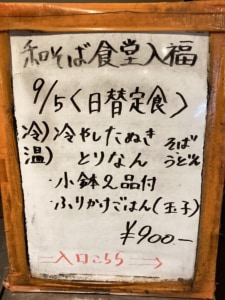 和そば食堂入福
9/5〈日替定食〉
冷)冷やしたぬき そば
温)とりなん うどん
・小鉢2品付
・ふりかけごはん(玉子)
¥900-
入口こちら→